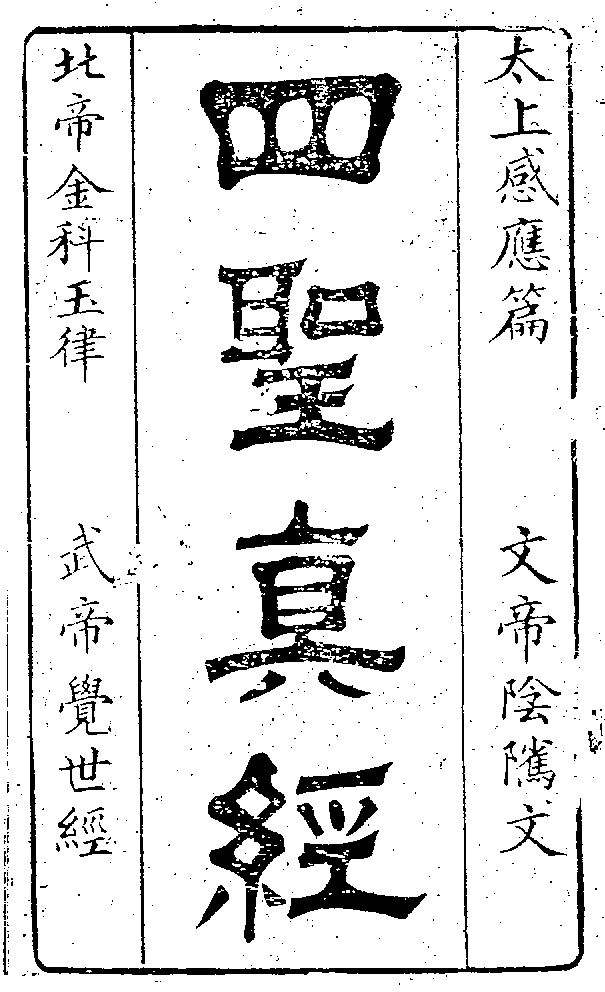 太上感應篇 文帝陰隲文
四聖真經
北帝金科玉律 武帝覺世經